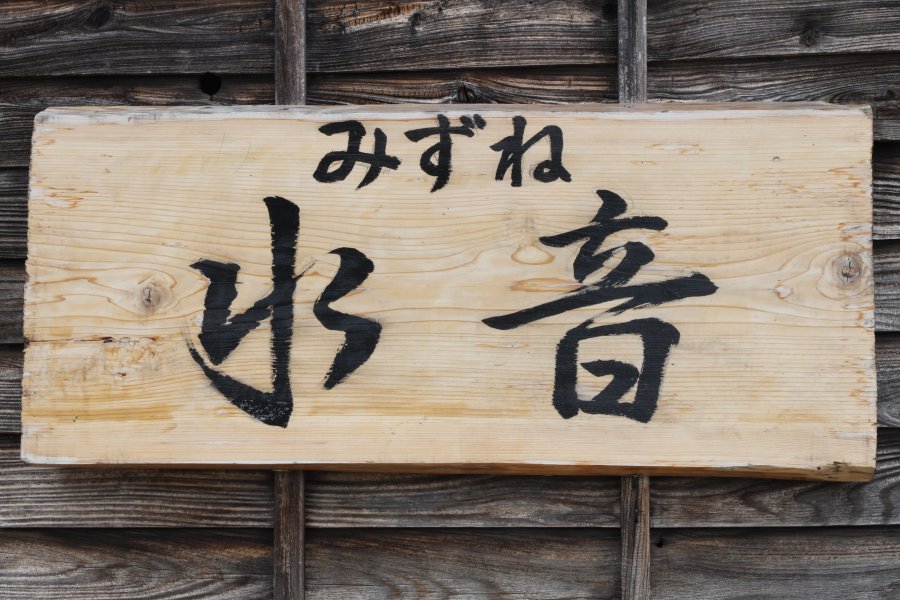 みずね
水音